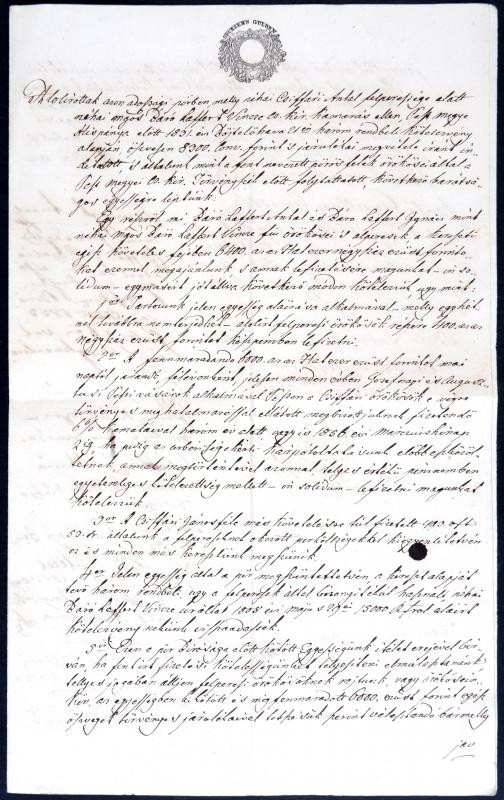 FÜNFZEHN GULDEN
Alolirottak azon adossági pörben, melly néhai Csiffári Antal felperessége alatt
néhai mgos Báró Laffert Vincze Cs. kir. kamarás ellen, Pest megye
Alispánja előtt 1831. évi három rendbeli kötelezvény
alapján 8300. Conv. forint s járulékai megvétele iránt in-
díttatott, s általunk mint a fent nevezett pörös felek örökösei által a
Pest megyei Cs. kir. Törvényszék előtt folytattatott, következő barátsá-
gos egyességre léptünk:
Egy részről mi Báró Laffert Antal és Báró Laffert Ignácz mint
néhai mgos Báró Laffert Vincze fiu örökösei s alperesek a kereseti
egész követelés fejében 6400. az az Hat ezer négyszáz ezüst forinto-
kat ezennel megajánlunk s annak lefizetésére magunkat – in so-
lidum – egymásért jótállva következő módon kötelezzük, ugy mint:
1ör Tartozunk jelen egyesség aláirása alkalmával – melly egy hét-
nél továbbra nem terjedhet – alolirt felperesi örökösök részére 400. az az
négyszáz ezüst forintot készpénzben lefizetni.
2or A fennmaradandó 6000. az az Hat ezer ezüst forintot mai
naptól járandó félévenként, jelesen minden évben Josefnapi és Augusz-
tusi Pesti vásárok alkalmával Pesten a Csiffári örökösök e végre
törvényes meghatalmazással ellátott megbizottjának fizetendő
6% kamatjával három év alatt vagyis 1856. évi Martius hónap
ig, ha pedig az urbéri kárpótoltatásunk előbb eszközöl-
tetnék, annak megtörténtével azonnal teljes értékü pénznemben
egyetemleges kötelezettség mellett – in solidum – lefizetni magunkat
kötelezzük.
3or A Csiffári Jánosféle más követelésre tul fizetett 493. oft
53. xr. általunk a felpereseknek okozott perköltségekkel kiegyenlitetvén
ez és minden más keresetünk megszünik.
4er Jelen egyesség által a pör megszüntettetvén a kereset alapját
tevő három rendbeli, ugy a felperesek által bizonyitékul használt, néhai
Báró Laffert Vincze úr által 1808. évi május 29én 15000 Rfrol aláirt
kötelezvény nekünk visszaadassék.
5ör Ezen a pör Birósága előtt kötött Egyességünk itélet erejével bir-
ván, ha fentirt fizetési kötelességünket teljesiteni elmulasztanánk
teljes jogában álljon felperesi örökösöknek rajtunk, vagy örökösein-
ken, az egyességben kikötött és még fennmaradott 6000. ezüst forint egész
összveget törvényes járulékaival letszésök szerint választandó bármelly
jav